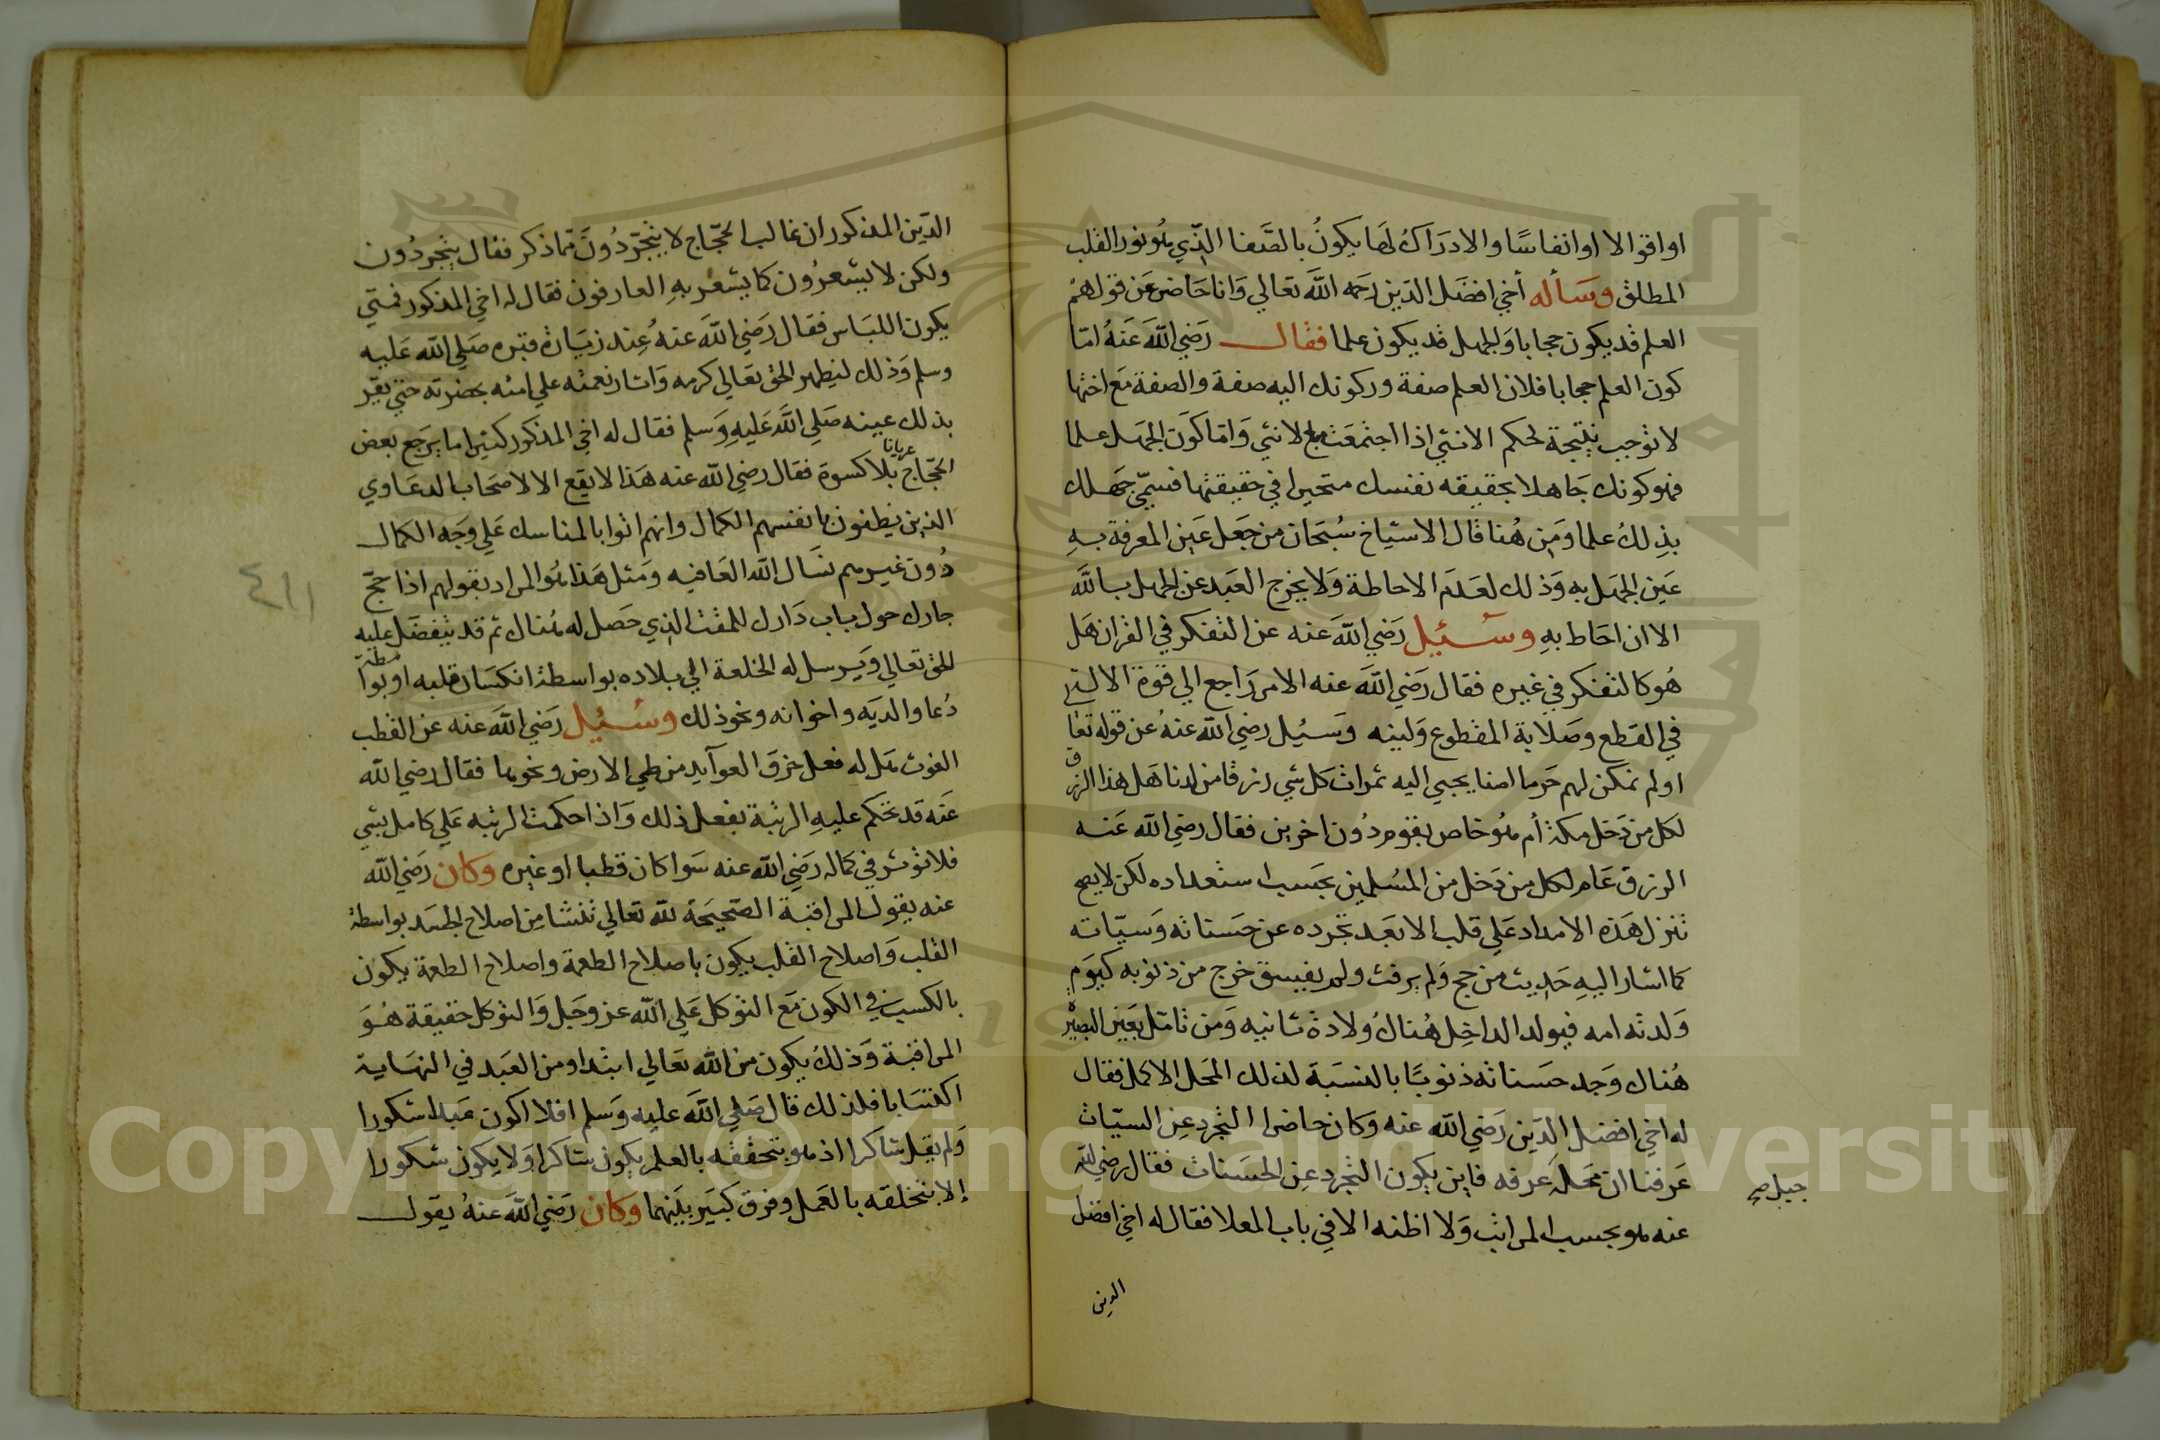 اواقوالا اوانفاسًا والادراك لها يكونُ بالصَّفا الذّي هُو نور القلب
المطلق وسَأله أخي افضَل الدّين رَحمه اللهَ تعالي وَانا حَاضر عَن قولهمْ
العلم قد يكون حجابا وَالجهل قد يكون علما فقال رَضيَ اللهَ عَنهُ امّا
كون العلم حجابا فلان العلم صفة وركونك اليه صفة والصفة مَع اختها
لا توجب نتيجة لحكم الانثي اذا اجتمعَت مع الانثي وَامّا كوَن الجهَل علما
فهو كونك جَاهلا بحقيقه نفسك متحيرا في حقيقتها فسمّي جَهلك
بذِلكُ علما ومَن هُنا قال الاشياخ سُبحَان من جعَل عَين المعرفة بهِ
عَين الجهَل به وَذلك لعَدَم الاحاطة وَلا يخرج العَبد عن الجهل بالله
الا ان احَاط بهِ وسُئيل رَضيَ اللهَ عنه عن التفكر في القران هَل
هُو كالتفكر في غيره فقال رَضيَ اللهَ عنه الامر رَاجع الي قوة الالة
في القطع وصَلابة المقطوع وَلينه وَسَيُل رضيَ اللهَ عنهُ عن قوله تعا
اولم نمكن لهم حَرما امنا يجبي اليه ثمرات كل شي رزقا من لدنا هَل هذا الرزق
لكل من دَخل مكة أم هُو خاص بقوم دُون اخرين فقال رضيَ اللهَ عَنه
الرزق عَام لكل من دَخل من المسُلمين بحَسب استعداده لكن لا يصح
تنزل هَذه الامداد عَلي قلب الا بعَد تجرده عن حَسناته وَسيّاته
كما اشار اليهِ حَديث من حج وَلم يرفث ولم يفسق خرج من ذنوبه كيوَم
وَلدته امه فيولد الداخِل هُناكُ ولادة ثانيه وَمن تامّل بعَين البصيره
هُناك وَجد حسَناته ذنوبًا بالنسَبة لذلك المحَل الاكمل فقال
له اخي افضل الدّين رَضيَ اللهَ عنه وَكان حاضرا التجرد عن السيّات
عَرفنا ان محَله عَرفه فاين يكون التجرد عن الحسَنات فقال رضي الله
عنه هو بحسب المراتب وَلا اظنه الا في باب المعلا فقال له اخي افضل
جبل صح
الدين
الدّين المذكور ان غالب الحجّاج لا يتجرّدُونَ ممّا ذكر فقال يتجردُون
ولكن لا يشعرُون كما يشعُر بهِ العارفون فقال له اخي المذكور فمتي
يكون اللبَاس فقال رَضيَ اللهَ عنهُ عِند زيَارة قبره صَلي الله عَليه
وسلم وَذلك ليظهر الحق تعَالي كرمه وَاثار نعمته علي امته بحضرته حتي تقر
بذلك عينه صَلي اللهَ عَليهِ وَسلم فقال له اخي المذكور كثيرا ما يرجَع بعض
الحجّاج عريانا بلا كسوة فقال رَضيَ الله عنه هَذا لا يقع الا لاصحَاب الدعَاوي
الذين يظنون بانفسهم الكمال وانهم اتوا بالمناسك عَلي وجَه الكمال
دُون غيرهم نسَال الله العَافيه ومَثل هَذا هُو المراد بقولهم اذا حجّ
جارك حول باب دَارك للمقت الذي حَصل له هُناك ثم قد يتفضّل عليه
الحق تعالي وَيرسل له الخلعة الي بلاده بواسطة انكسَار قلبه اوبواسطة
دُعا وَالديَه واخوانه ونحوذلك وسُئيل رَضيَ اللهَ عنه عن القطب
الغوث هَل له فعل خرق العوآيد من طي الارض ونحوها فقال رضي الله
عَنه قد تحكم عليهِ الرتبة بفعل ذلك وَاذا حكمت الرتبه عَلي كامل بشي
فلا توثر في كماله رَضيَ الله عنه سَوا كان قطبا اوغيره وكان رَضيَ الله
عنه يقول المراقبَة الصّحيحَة لله تعَالي تنشا من اصلاح الجسَد بواسطة
القلب وَاصلاح القلب يكون باصلاح الطعمة واصلاح الطعمة يكون
بالكسب في الكون مَع التوكل عَلي الله عز وجَل وَالتوكل حقيقة هُوَ
المراقبَة وَذلكُ يكون من الله تعَالي ابتدا ومن العَبد في النهَاية
اكتسَابا فلذلك قال صَلي اللهَ عليه وَسلم افلا اكون عَبدا شكورا
وَلم يقل شاكرا اذ هو بتحققه بالعلم يكون شاكرا وَلا يكون شكورا
إلا بتخلقه بالعمَل وفرق كبيَر بيَنهما وَكان رَضيَ اللهَ عنهُ يقول
٤١١
Copyright © King Saud University